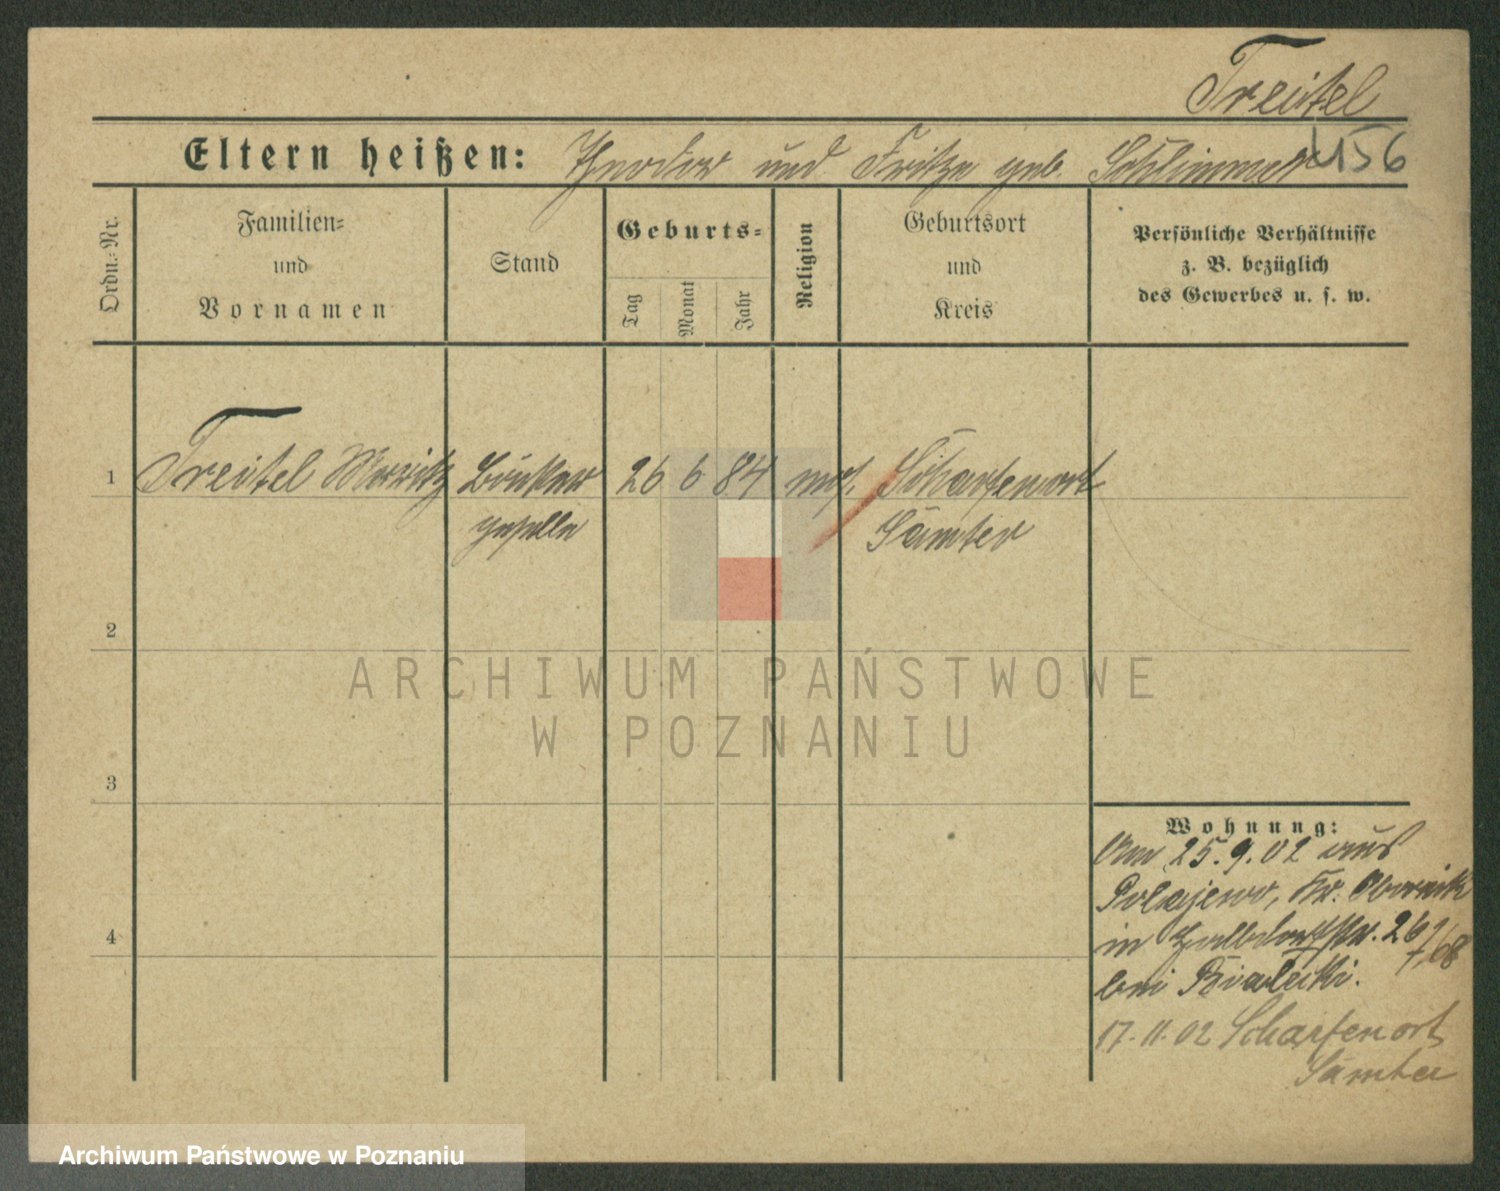 Treitel
156
Eltern heißen: Theodor und Fritze geb. Schlimmer
Ordn.-Nr.
Familien-
und
Vornamen
Stand
Geburts-
Tag
Monat
Jahr
Religion
Geburtsort
und
Kreis
Persönliche Verhältnisse
z. B. bezüglich
des Gewerbes u. s. w.
1 Treitel Moritz Bäcker 26 6 84 mos. Scharfenort
geselle Samter
2
3
4
Wohnung:
Am 25.9.02 aus
Polajewo, Kr. Obornik
in Halbdorfstr. 26
bei Bialecki.
17.11.02 Scharfenort
Samter
ARCHIWUM PAŃSTWOWE
W POZNANIU
Archiwum Państwowe w Poznaniu